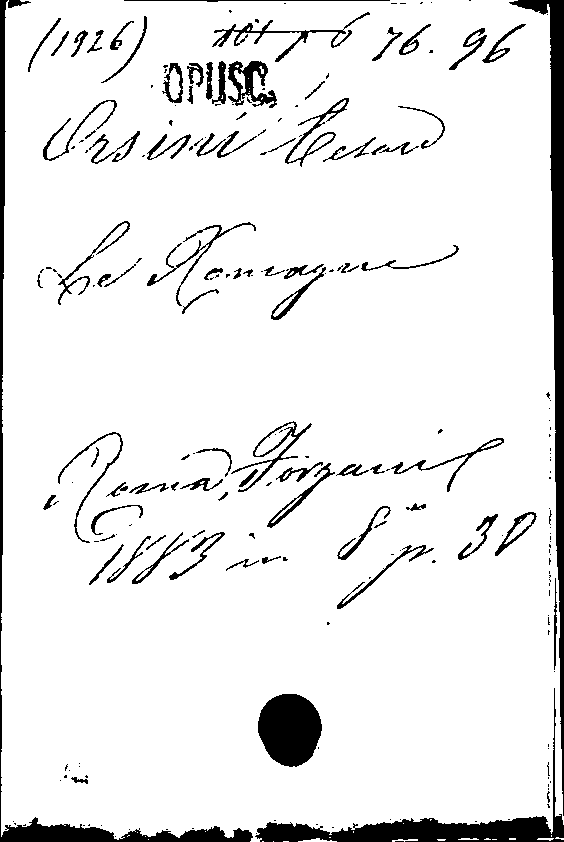 (1926) 76. 96
OPUSC.
Orsini Cesare
Le Romagne
Roma, Forzani
1883 in 8° p. 30